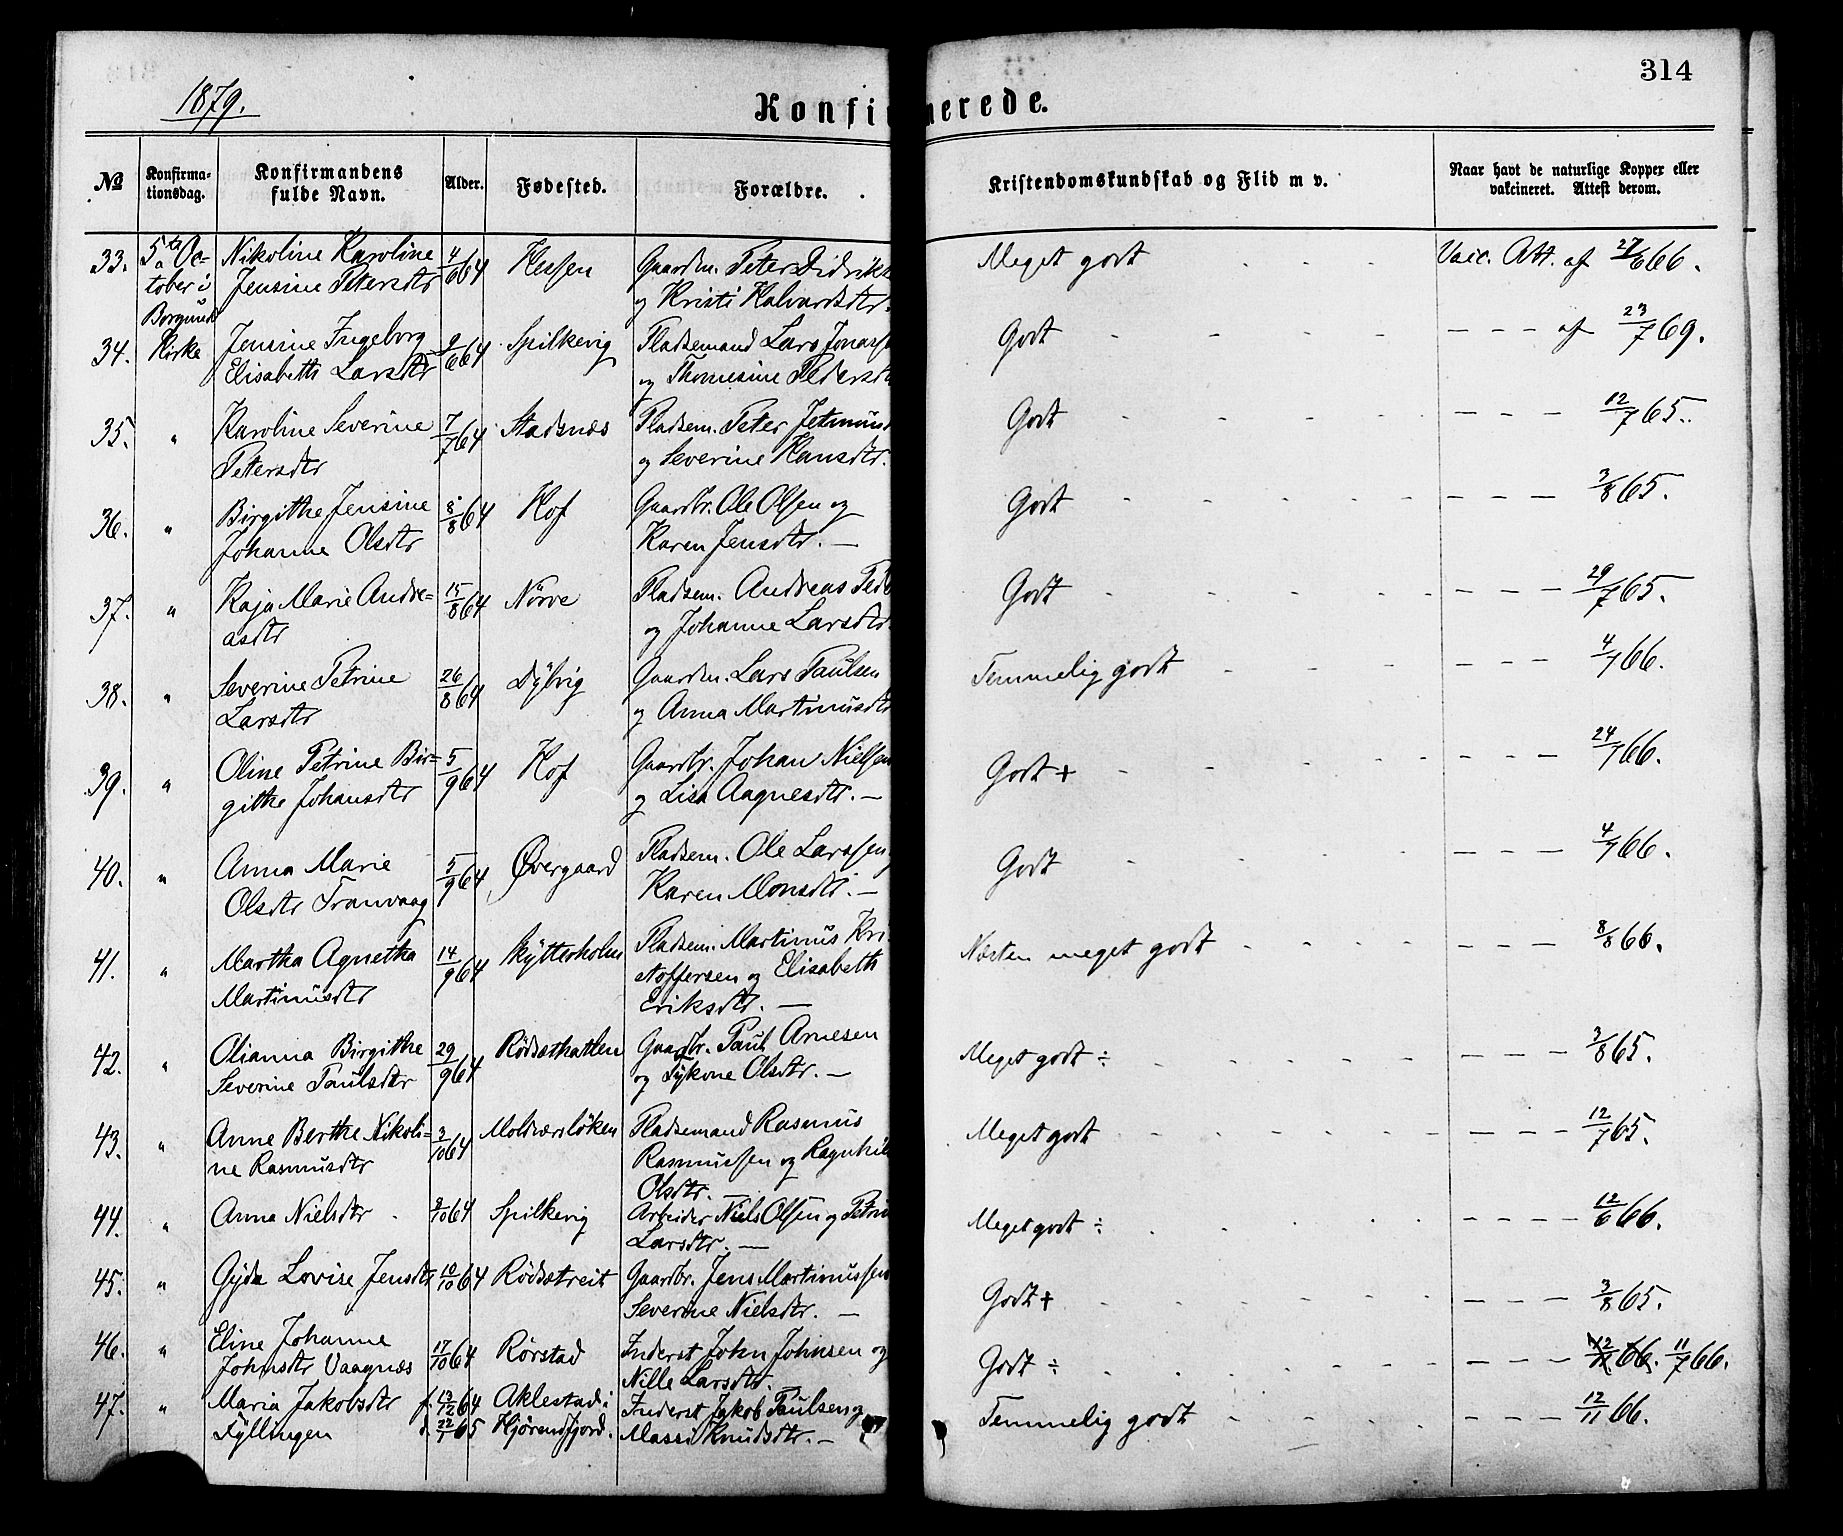 314
1879.
Konfirmerede.
№
Konfirma-
tionsdag.
Konfirmandens
fulde Navn.
Alder.
Fødested.
Forældre.
Kristendomskundskab og Flid m v.
Naar havt de naturlige Kopper eller
vakcineret. Attest derom.
33. 5te Oc- Nikoline Karoline 4/6 64 Hessen Gaardm. Peter Didriks Meget godt - - - Vacc. Att. af 27/6 66.
tober i Jensine Petersdtr og Kristi Halvardsdtr.
Borgund
34. Kirke Jensine Ingeborg 9/6 64 Spilkevig Pladsemand Lars Jonass Godt - - - - - - - af 23/7 69.
Elisabeth Larsdtr og Thomesine Pedersdt
35. " Karoline Severine 7/7 64 Stadsnæs Pladsem. Peter Jetmun Godt - - - - - - - 12/7 65.
Petersdtr og Severine Hansdtr.
36. " Birgithe Jensine 8/8 64 Hof Gaardbr. Ole Olsen og Godt - - - - - - - 3/8 65.
Johanne Olsdtr Karen Jensdtr. —
37. " Kaja Marie Andre- 15/8 64 Nörve Pladsem. Andreas Ped Godt - - - - - - - 29/7 65.
asdtr og Johanne Larsdtr.
38. " Severine Petrine 26/8 64 Dÿbvig Gaardm. Lars Paulsen Temmelig godt - - - - - - 4/7 66.
Larsdtr og Anna Martinusdtr
39. " Oline Petrine Bir- 5/9 64 Hof Gaardbr. Johan Nielsen Godt + - - - - - - - 24/7 66.
githe Johansdtr og Lisa Aagnesdtr. —
40. " Anna Marie 5/9 64 Øvergaard Pladsem. Ole Larssen Godt - - - - - - - 4/7 66.
Olsdtr Tranvaag Karen Monsdtr. —
41. " Martha Agnetha 14/9 64 Skÿtterholm Pladsem. Martinus Kri- Næsten meget godt - - - - - - 8/8 66.
Martinusdtr stoffersen og Elisabeth
Eriksdtr. —
42. " Olianna Birgithe 29/9 64 Rödsæthatlen Gaardbr. Paul Arnesen Meget godt ÷ - - - - - - 3/8 65.
Severine Paulsdtr og Sÿkone Olsdtr. —
43. " Anne Berthe Nikoli- 3/10 64 Moldværslöken Pladsemand Rasmus Meget godt - - - - - - - 12/7 65.
ne Rasmusdtr Rasmussen og Ragnhil
Olsdtr. —
44. " Anna Nielsdtr 9/10 64 Spilkevig Arbeider Niels Olsen og Petrin Meget godt ÷ - - - - - - 12/6 66.
Larsdtr. —
45. " Gÿda Lovise Jensdtr 10/10 64 Rödsætreit Gaardbr. Jens Martinussen Godt + - - - - - - 3/8 65.
Severine Nielsdtr. —
46. " Eline Johanne 17/10 64 Rörstad Inderst John Johnsen og Godt ÷ - - - - - - 12/11 66. 11/7 66.
Johnsdtr Vaagnæs Nille Larsdtr.
47. " Maria Jakobsdtr f. 13/12 64 Aklestad i Inderst Jakob Paulsen og Temmelig godt - - - - - - 12/11 66.
Fÿllingen d. 22/1 65 Hjörendfjord. Massi Knudsdtr. —